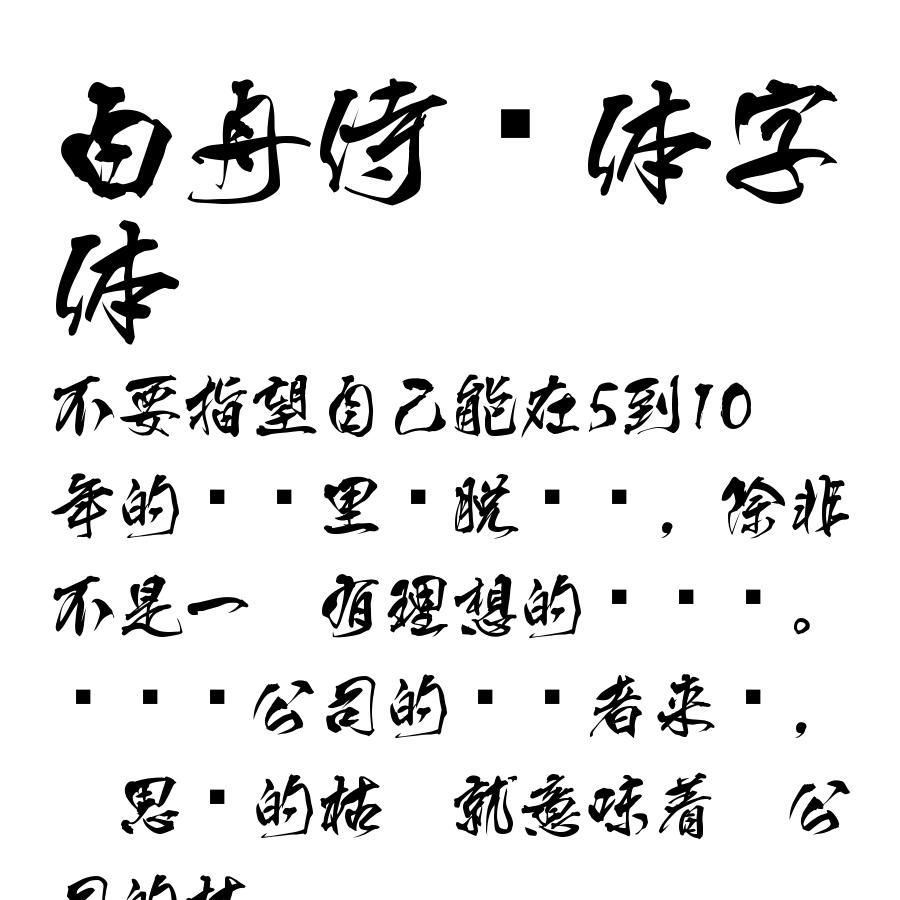 白舟侍▪体字
体
不要指望自己能在5到10
年的▪▪里▪脱▪▪，除非
不是一 有理想的▪▪▪。
▪▪▪公司的▪▪者来▪，
 思▪的枯 就意味着 公
司的枯